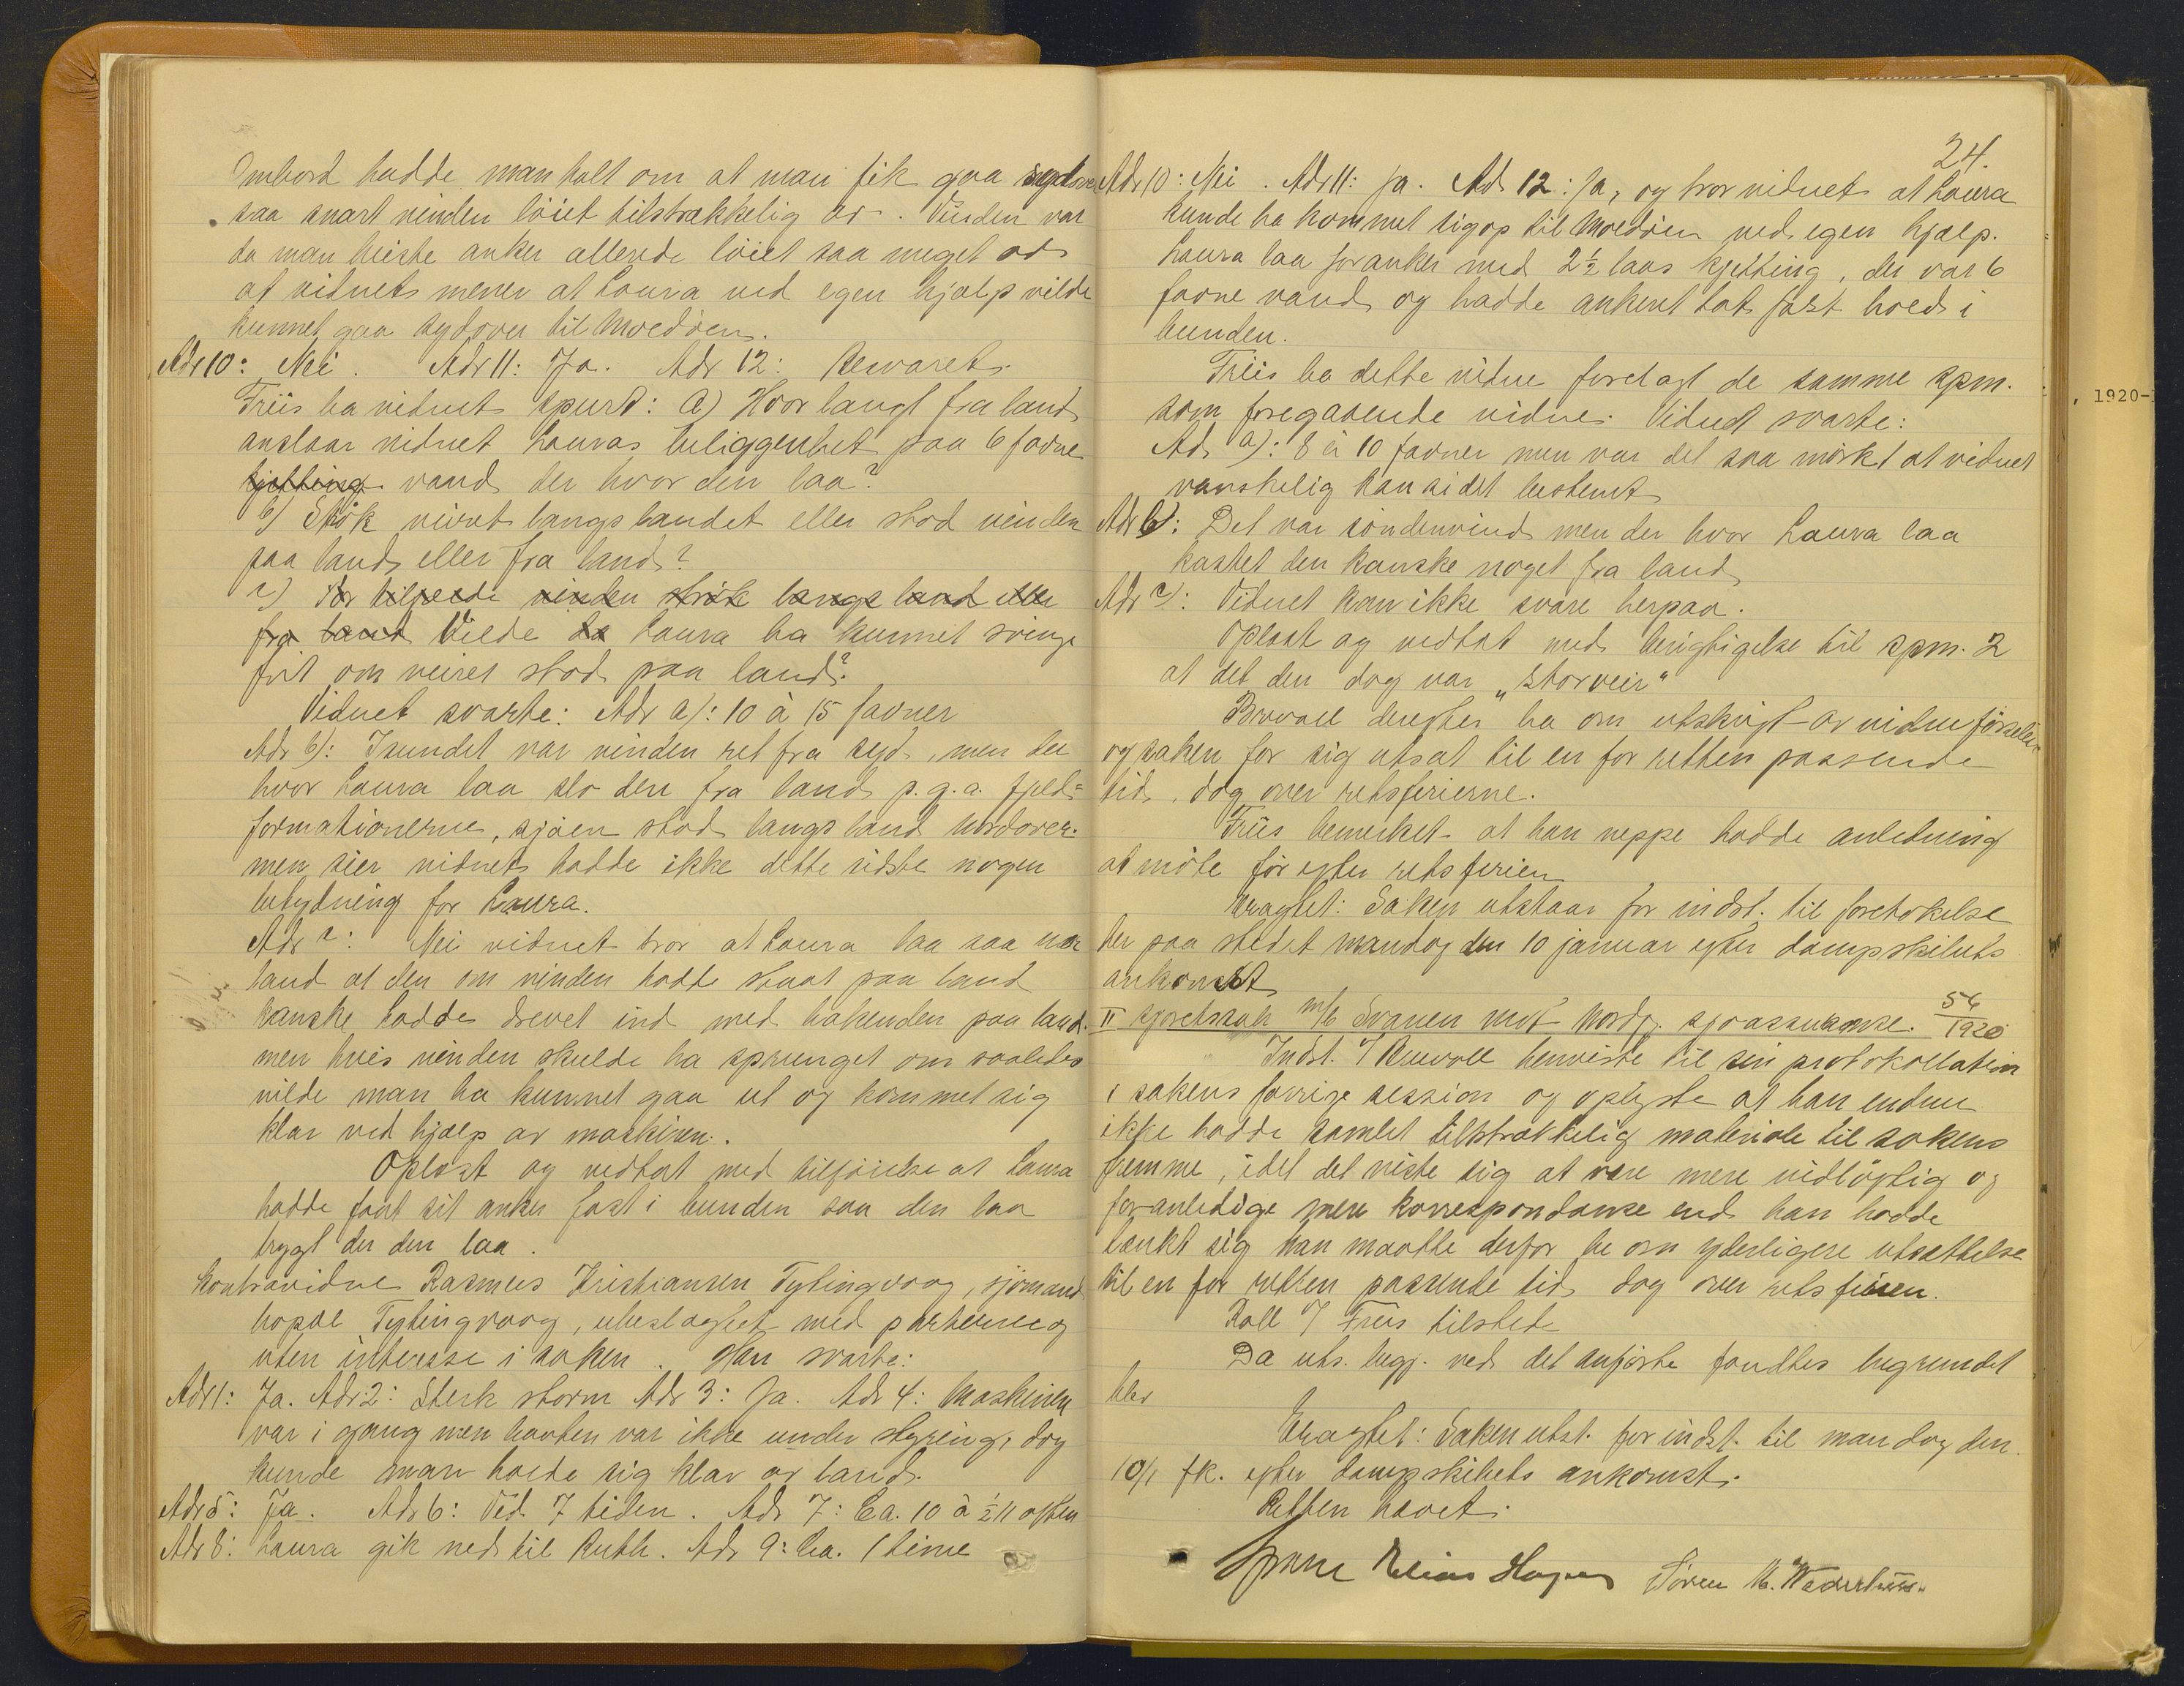 Ombord hadde man talt om at man fik gaa sydover
saa snart vinden løiet tilstrækkelig av. Vinden var
da man heiste anker allerede løiet saa meget av
at vidnet mener at Laura ved egen hjælp vilde
kunnet gaa sydover til Moldøen.
Adr 10: Nei. Adr 11: Ja. Adr 12: Bevaret.
Friis ba vidnet spurt: a) Hvor langt fra land
anslaar vidnet Lauras beliggenhet paa 6 favne
kjetting vand der hvor den laa?
b) Strøk veiret langs landet eller stod vinden
paa land eller fra land?
c) vinden strøk langs land eller
fra land Vilde da Laura ha kunnet svinge
frit om veiret stod paa land?
Vidnet svarte: Adr a): 10 à 15 favner
Adr b): I sundet var vinden ret fra syd, men der
hvor Laura laa slo den fra land p.g.a. fjeld-
formationerne, sjøen stod langs land nordover.
men sier vidnet hadde ikke dette sidste nogen
betydning for Laura.
Adr c: Nei vidnet tror at Laura laa saa nær
land at den om vinden hadde staat paa land
kanske hadde drevet ind med bakenden paa land.
men hvis vinden skulde ha sprunget om saaledes
vilde man ha kunnet gaa ut og kommet sig
klar ved hjælp av maskinen.
Oplæst og vedtat med tilføielse at Laura
hadde faat sit anker fast i bunden saa den laa
trygt der den laa.
Kontravidne Rasmus Kristiansen Tytingvaag, sjømand
bopæl Tytingvaag, ubeslægtet med parterne og
uten interesse i saken. Han svarte:
Adr 1: Ja. Adr 2: Sterk storm Adr 3: Ja. Adr 4: Maskinen
var i gang men baaten var ikke under styring, dog
kunde man holde sig klar av land.
Adr 5: Ja. Adr 6: Ved 7 tiden. Adr 7: Ca. 10 à ½11 aften
Adr 8: Laura gik ned til Ruth. Adr 9: Ca. 1 time
24.
Adr 10: Nei. Adr 11: Ja. Adr 12: Ja, og tror vidnet at Laura
kunde ha kommet sig op til Moldøen ved egen hjælp.
Laura laa for anker med 2½ laas kjetting, der var 6
favne vand og hadde ankeret tat fast hold i
bunden.
Friis ba dette vidne forelagt de samme spm.
som foregaaende vidne. Vidnet svarte:
Adr a): 8 à 10 favner men var det saa mørkt at vidnet
vanskelig kan si det bestemt
Adr b): Det var søndenvind men der hvor Laura laa
kastet den kanske noget fra land
Adr c): Vidnet kan ikke svare herpaa.
Oplæst og vedtat med berigtigelse til spm. 2
at det den dag var "storveir"
derefter ba om utskrift av vidneførselen
og saken for sig utsat til en for retten passende
tid, dog over retsferierne.
Friis bemerket at han neppe hadde anledning
at møte før efter retsferien
Eragtet: Saken utstaar for indst. til foretakelse
her paa stedet mandag den 10 januar efter dampskibets
ankomst
II Sjøretssak m/k Svanen mot Nordfj. sjøassurance. 56/1920
Indst. henviste til sin protokollation
i sakens forrige session og oplyste at han endnu
ikke hadde samlet tilstrækkelig materiale til sakens
fremme, idet det viste sig at være mere vidløftig og
foranledige mere korrespondanse end han hadde
tænkt sig han maatte derfor be om yderligere utsættelse
til en for retten passende tid, dog over retsferien.
Friis tilstede
Da uts. begj. ved det anførte fandtes begrundet
blev
Eragtet: Saken utst. for indst. til mandag den
10/1 fk. efter dampskibets ankomst.
Retten hævet.
Elias Hagen Søren M.
, 1920-1